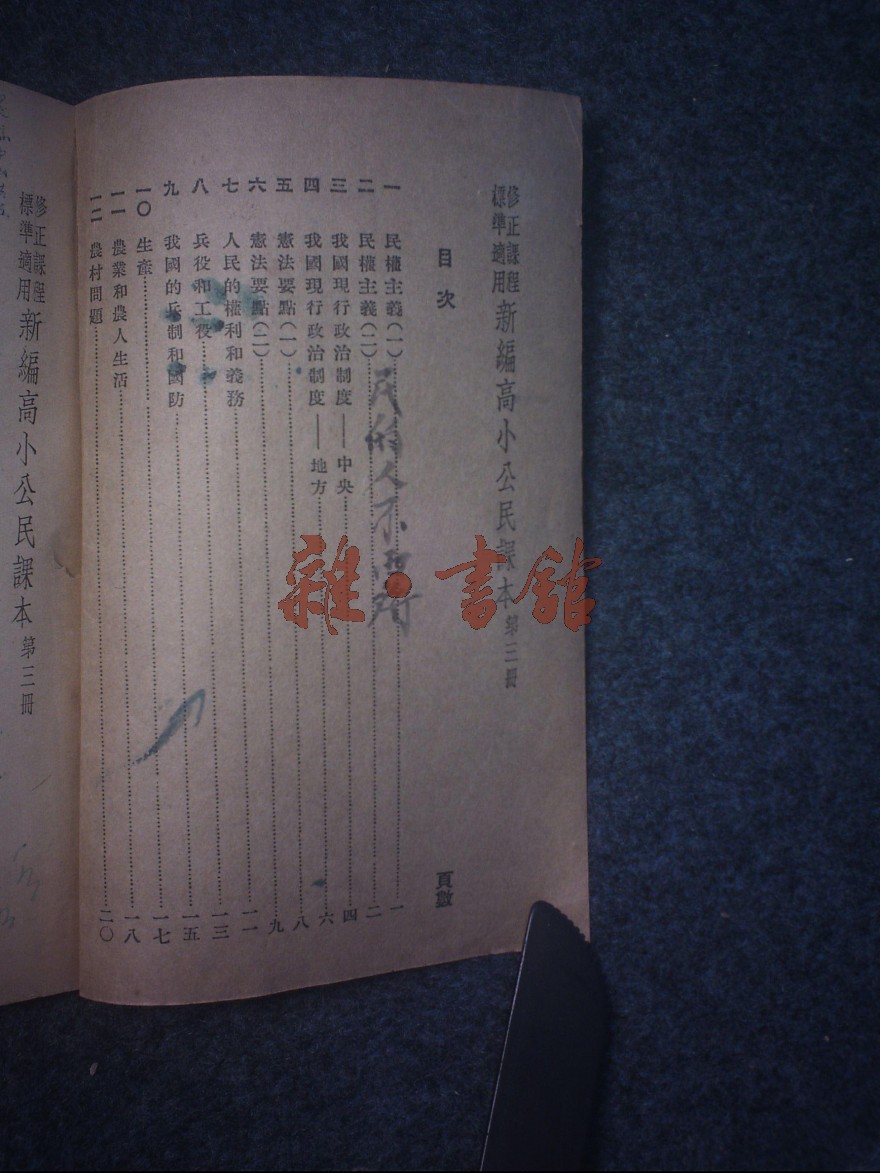 修正課程
標準適用
新編高小公民課本 第三冊
目次
頁數
一 民權主義(一)……一
二 民權主義(二)……二
三 我國現行政治制度——中央……四
四 我國現行政治制度——地方……六
五 憲法要點(一)……八
六 憲法要點(二)……九
七 人民的權利和義務……一一
八 兵役和工役……一三
九 我國的兵制和國防……一五
一〇 生產……一七
一一 農業和農人生活……一八
一二 農村問題……二〇
民的人不
雜·書館
修正課程
標準適用
新編高小公民課本 第三冊